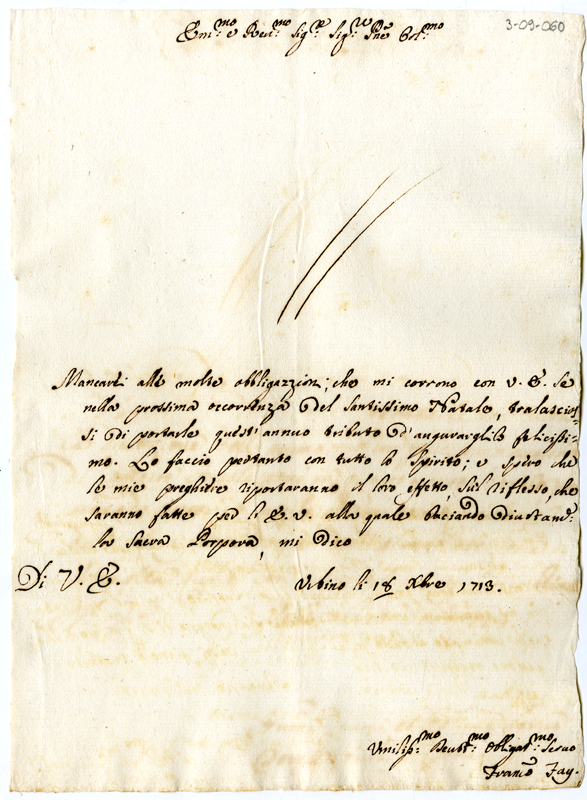 3-09-060
Em.mo e Rev.mo Sig.r Sig.r Pñe Col.mo
Mancarei alle molte obbligazzioni, che mi corrono con V. E. se
nella prossima occorrenza del Santissimo Natale, tralascias
si di portarle quest'annuo tributo d'augurarglilo felicissi
mo. Lo faccio pertanto con tutto lo Spirito; e spero che
le mie preghiere riportaranno il loro effetto, sul riflesso, che
saranno fatte per l' E. V. alla quale baciando
la Sacra Porpora, mi dico
Di V. E.
Urbino li 18 Xbre 1713.
Umiliss.mo Devot.mo Obligat.mo Servo
Franc.o